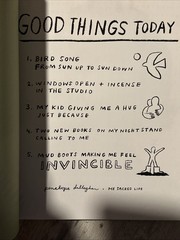 GOOD THINGS TODAY
1. BIRD SONG
FROM SUN UP TO SUN DOWN
2. WINDOWS OPEN + INCENSE
IN THE STUDIO
3. MY KID GIVING ME A HUG
JUST BECAUSE
4. TWO NEW BOOKS ON MY NIGHTSTAND
CALLING TO ME
5. MUD BOOTS MAKING ME FEEL
INVINCIBLE
penelope dullaghan - OUR SACRED LIFE